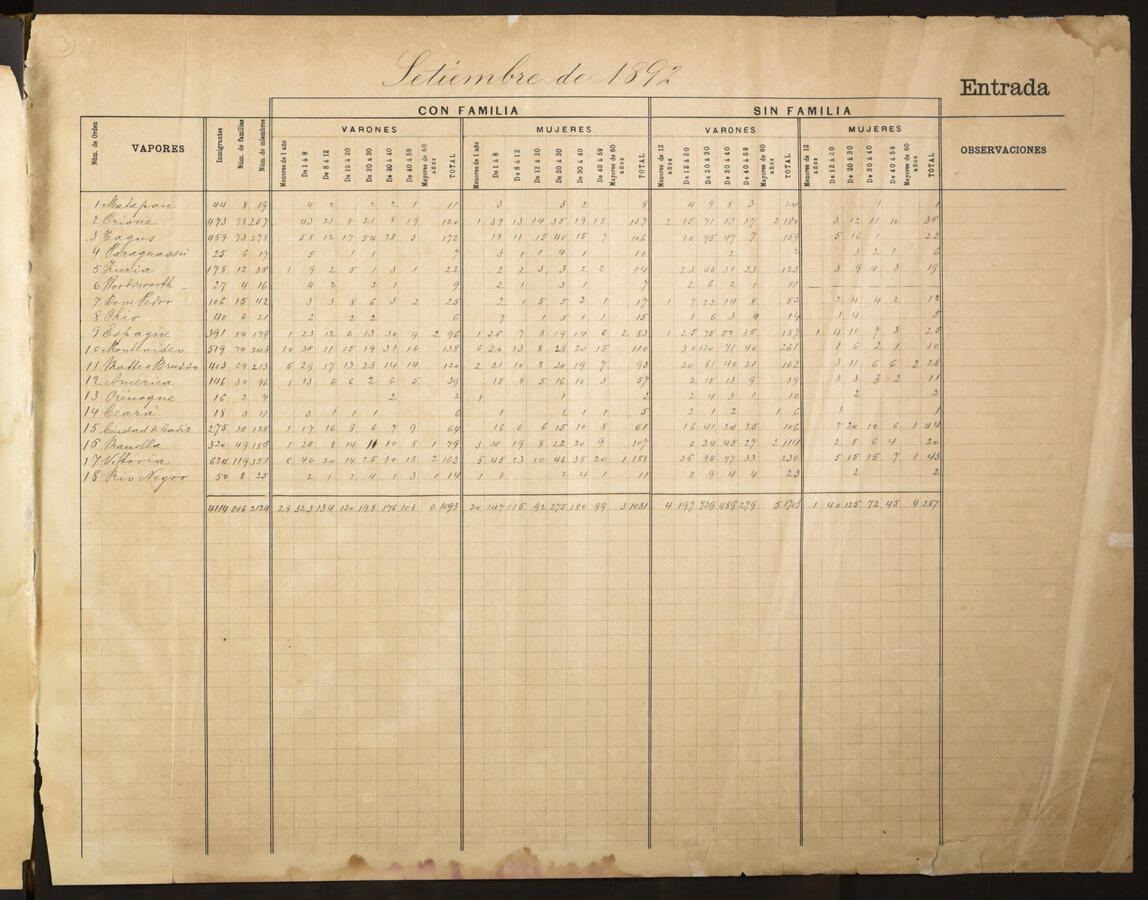 3
Setiembre de 1892
Entrada
CON FAMILIA SIN FAMILIA
VARONES MUJERES VARONES MUJERES
Núm. de Orden VAPORES Inmigrantes Núm. de familias Núm. de miembros Menores de 1 año De 1 á 8 De 8 á 12 De 12 á 20 De 20 a 30 De 30 á 40 De 40 á 59 Mayores de 60 años TOTAL Menores de 1 año De 1 á 8 De 8 á 12 De 12 á 20 De 20 á 30 De 30 á 40 De 40 á 59 Mayores de 60 años TOTAL Menores de 12 años De 12 á 20 De 20 á 30 De 30 á 40 De 40 á 59 Mayores de 60 años TOTAL Menores de 12 años De 12 á 20 De 20 á 30 De 30 á 40 De 40 á 59 Mayores de 60 años TOTAL OBSERVACIONES
1 Matapan 44 8 19 4 2 2 2 1 11 3 3 2 8 4 9 8 3 24 1 1
2 Orione 473 78 257 43 21 8 21 8 19 120 1 37 13 14 35 19 18 137 2 15 71 37 2 180 3 12 11 10
3 Tagus 459 73 278 58 12 17 54 28 3 172 18 11 15 40 15 7 106 10 95 47 7 159 5 16 1 22
4 Paraguassú 25 6 17 5 1 1 7 3 1 1 4 1 10 2 2 3 2 1 6
5 Zuria 178 12 36 1 9 2 5 1 3 1 22 2 2 3 3 2 2 14 23 46 31 23 123 3 9 4 3 19
6 Wordsworth 27 4 16 4 2 2 1 9 2 1 3 1 7 2 6 2 1 11
7 Dom Pedro 106 15 42 3 3 8 6 3 2 25 2 1 5 5 3 1 17 1 7 22 14 8 52 2 4 4 2 12
8 Ohio 40 6 21 2 2 2 6 7 1 5 1 1 15 1 6 3 4 14 1 4 5
9 Espagne 391 54 179 1 23 12 6 13 30 9 2 96 1 25 7 8 19 14 6 2 83 1 25 75 35 187 1 4 10 7 3 25
10 Montevideo 519 74 248 10 36 11 15 19 31 16 138 6 20 13 8 28 20 15 110 30 120 71 40 261 1 6 2 1 10
11 Matteo Bruzzo 403 69 213 5 29 17 13 28 14 14 120 2 21 10 8 7 93 20 81 40 21 162 3 11 6 6 2 28
12 America 146 30 96 1 13 6 6 2 6 5 39 15 8 5 16 10 3 57 2 15 13 9 39 3 3 3 2 11
13 Orénoque 16 2 4 2 2 1 1 2 2 4 3 1 10 2 2
14 Ceará 18 3 11 3 1 1 1 6 1 2 1 1 5 2 1 2 1 6 1 1
15 Ciudad de Cadiz 275 38 125 1 17 16 8 6 7 9 64 16 6 6 15 10 8 61 16 41 24 25 106 7 20 10 6 1 44
16 Manilla 320 49 186 1 28 8 14 10 10 8 1 79 3 25 19 8 22 20 9 107 6 34 45 27 2 114 2 8 6 4 20
17 Vittoria 624 119 351 5 46 20 14 25 30 18 2 163 5 45 23 10 46 38 20 1 188 25 94 77 33 230 5 15 15 7 1 43
18 Rio Negro 50 8 25 2 1 2 4 1 3 1 14 1 3 2 4 1 11 6 9 4 4 23 2 2
4114 646 2124 28 323 134 120 198 176 108 6 1093 20 247 115 92 275 180 99 3 1031 4 197 729 489 279 5 1703 1 40 125 72 45 4 287